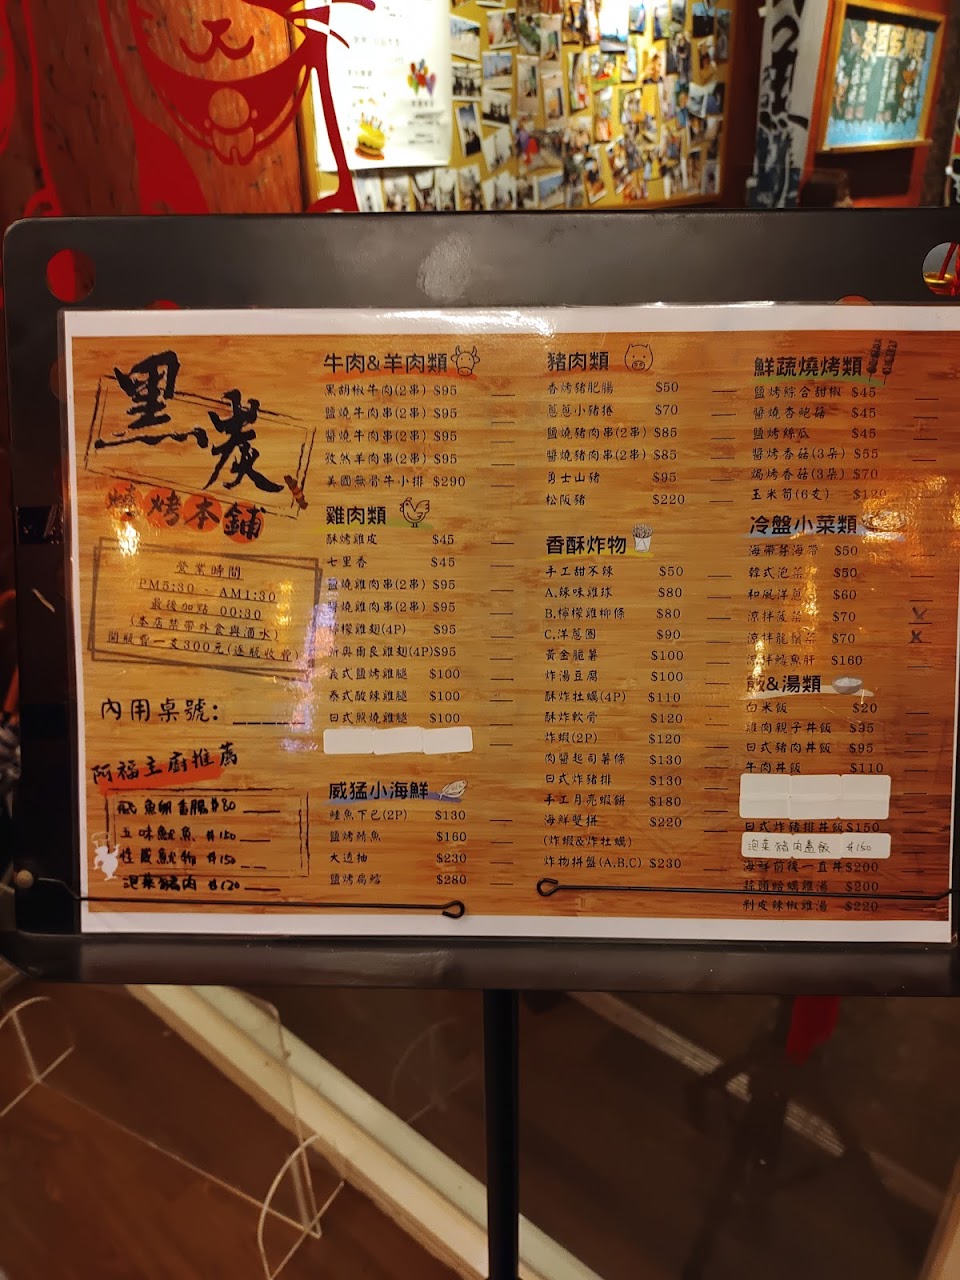 黑炭
燒烤本舖
營業時間
PM5:30 - AM1:30
最後加點 00:30
(本店禁帶外食與酒水)
開瓶費一支300元(逐瓶收費)
內用桌號:
阿福主廚推薦
$80
五味魷魚 $150
$150
泡菜豬肉 $120
牛肉&羊肉類
黑胡椒牛肉(2串) $95
鹽燒牛肉串(2串) $95
醬燒牛肉串(2串) $95
孜然羊肉串(2串) $95
美國無骨牛小排 $290
雞肉類
酥烤雞皮 $45
七里香 $45
鹽燒雞肉串(2串) $95
醬燒雞肉串(2串) $95
檸檬雞翅(4P) $95
新奧爾良雞翅(4P)$95
義式鹽烤雞腿 $100
泰式酸辣雞腿 $100
日式照燒雞腿 $100
威猛小海鮮
鮭魚下巴(2P) $130
鹽烤鯖魚 $160
大透抽 $230
鹽烤扁鱈 $280
豬肉類
香烤豬肥腸 $50
蔥蔥小豬捲 $70
鹽燒豬肉串(2串) $85
醬燒豬肉串(2串) $85
勇士山豬 $95
松阪豬 $220
香酥炸物
手工甜不辣 $50
A.辣味雞球 $80
B.檸檬雞柳條 $80
C.洋蔥圈 $90
黃金脆薯 $100
炸湯豆腐 $100
酥炸牡蠣(4P) $110
酥炸軟骨 $120
炸蝦(2P) $120
肉醬起司薯條 $130
日式炸豬排 $130
手工月亮蝦餅 $180
海鮮雙拼 $220
(炸蝦&炸牡蠣)
炸物拼盤(A,B,C) $230
鮮蔬燒烤類
鹽烤綜合甜椒 $45
醬燒杏鮑菇 $45
鹽烤絲瓜 $45
醬烤香菇(3朵) $55
焗烤香菇(3朵) $70
玉米筍(6支) $120
冷盤小菜類
海帶芽海帶 $50
韓式泡菜 $50
和風洋蔥 $60
涼拌菠菜 $70 X
涼拌龍鬚菜 $70 X
涼拌鱈魚肝 $160
飯&湯類
白米飯 $20
雞肉親子丼飯 $95
日式豬肉丼飯 $95
牛肉丼飯 $110
日式炸豬排丼飯$150
泡菜豬肉蓋飯 $150
海鮮前後一直丼$200
蒜頭蛤蠣雞湯 $200
剝皮辣椒雞湯 $220